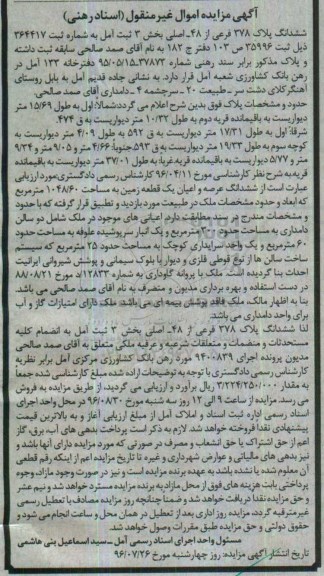 آگهی مزایده اموال غیرمنقول (اسناد رهنی)
ششدانگ پلاک ۳۷۸ فرعی از ۴۸ـ اصلی بخش ۳ ثبت آمل به شماره ثبت ۳۶۴۴۱۷
ذیل ثبت ۳۵۹۹۶ ص ۱۰۳ دفتر ج ۱۸۲ به نام آقای صمد صالحی سابقه ثبت داشته
و پلاک مذکور برابر سند رهنی شماره ۳۷۸۷۳ـ۹۵/۰۵/۱۵ دفترخانه ۱۳۳ آمل در
رهن بانک کشاورزی شعبه آمل قرار دارد. به نشانی جاده قدیم آمل به بابل روستای
آهنگرکلای دشت سر ـ طبیعت ۲۰ ـ سرچشمه ۴ ـ دامداری آقای صمد صالحی.
حدود و مشخصات پلاک فوق بدین شرح اعلام می گردد: شمالا: اول به طول ۱۵/۶۹ متر
دیواریست به باقیمانده قریه دوم به طول ۱۰/۳۲ متر دیواریست به ق ۴۷۴.
شرقا: اول به طول ۱۷/۳۱ متر دیواریست به ق ۵۹۲ به طول ۴/۰۹ متر دیواریست به
کوچه سوم به طول ۱۹/۳۳ متر دیواریست به ق ۵۹۳ جنوبا: ۴/۶۶ متر و ۹/۰۵ متر و ۹/۳۴
متر و ۵/۷۷ دیواریست به باقیمانده قریه. غربا: به طول ۳۷/۰۱ متر دیواریست به باقیمانده
قریه به شرح نظر کارشناسی مورخ ۹۶/۰۴/۱۱ کارشناس رسمی دادگستری، مورد ارزیابی
عبارت است از ششدانگ عرصه و اعیان یک قطعه زمین به مساحت ۱۰۴۸/۶۰ مترمربع
که ابعاد و حدود مشخصات ملک در طبیعت مورد بازدید و تطبیق قرار گرفته که با حدود
و مشخصات مندرج در سند مطابقت دارد. اعیانی های موجود در ملک شامل دو سالن
دامداری به مساحت حدود مترمربع و یک انبار سرپوشیده علوفه به مساحت حدود
۶۰ مترمربع و یک واحد سرایداری کوچک به مساحت حدود ۲۵ مترمربع که سیستم
ساخت سالن ها از نوع قوطی فلزی و دیوار با بلوک سیمانی و پوشش شیروانی ایرانیت
احداث بنا گردیده است. ملک با پروانه گاوداری به شماره ۱۲۸۳۳ مورخ ۸۸/۰۸/۲۱
در دست استفاده و بهره برداری مدیون و متصرف به نام آقای صمد صالحی می باشد.
بنا به اظهار مالک، ملک فاقد پوشش بیمه ای می باشد. ملک دارای امتیازات گاز و آب
برای واحد دامداری می باشد.
لذا ششدانگ پلاک ۳۷۸ فرعی از ۴۸ـ اصلی بخش ۳ ثبت آمل به انضمام کلیه
مستحدثات و منضمات و متعلقات شرعیه و عرفیه ملکی متعلق به آقای صمد صالحی
مدیون پرونده اجرای ۹۴۰۰۸۳۹ مورد رهن بانک کشاورزی مرکزی آمل برابر نظریه
کارشناس رسمی دادگستری با توجه به توضیحات اراده شده مبلغ کارشناسی شده جمعا
به مقدار ۳/۲۲۴/۲۵۰/۰۰۰ ریال برآورد و ارزیابی می گردد، از طریق مزایده به فروش
می رسد. مزایده از ساعت ۹ الی ۱۲ روز سه شنبه مورخ ۹۶/۰۸/۳۰ در محل واحد اجرای
اسناد رسمی اداره ثبت اسناد و املاک آمل از مبلغ ارزیابی آغاز و به بالاترین قیمت
پیشنهادی نقدا فروخته خواهد شد. لازم به ذکر است پرداخت بدهی های آب، برق، گاز
اعم از حق اشتراک یا حق انشعاب و مصرف در صورتی که مورد مزایده دارای آنها باشد و
نیز بدهی های مالیاتی و عوارض شهرداری و غیره تا تاریخ مزایده اعم از اینکه رقم قطعی
آن معلوم شده یا نشده باشد به عهده برنده مزایده است و نیز در صورت وجود مازاد، وجوه
پرداختی بابت هزینه های فوق از محل مازاد به برنده مزایده مسترد خواهد شد و نیم عشر
و حق مزایده نقدا دریافت خواهد شد و ضمنا چنانچه روز مزایده مصادف با تعطیل رسمی
غیرمترقبه گردد، مزایده روز اداری بعد از تعطیل در همان محل و ساعت انجام می شود و
حقوق دولتی و حق مزایده طبق مقررات وصول خواهد شد.
مسئول واحد اجرای اسناد رسمی آمل ـ سید اسماعیل بنی هاشمی
تاریخ انتشار آگهی مزایده: روز چهارشنبه مورخ ۹۶/۰۷/۲۶